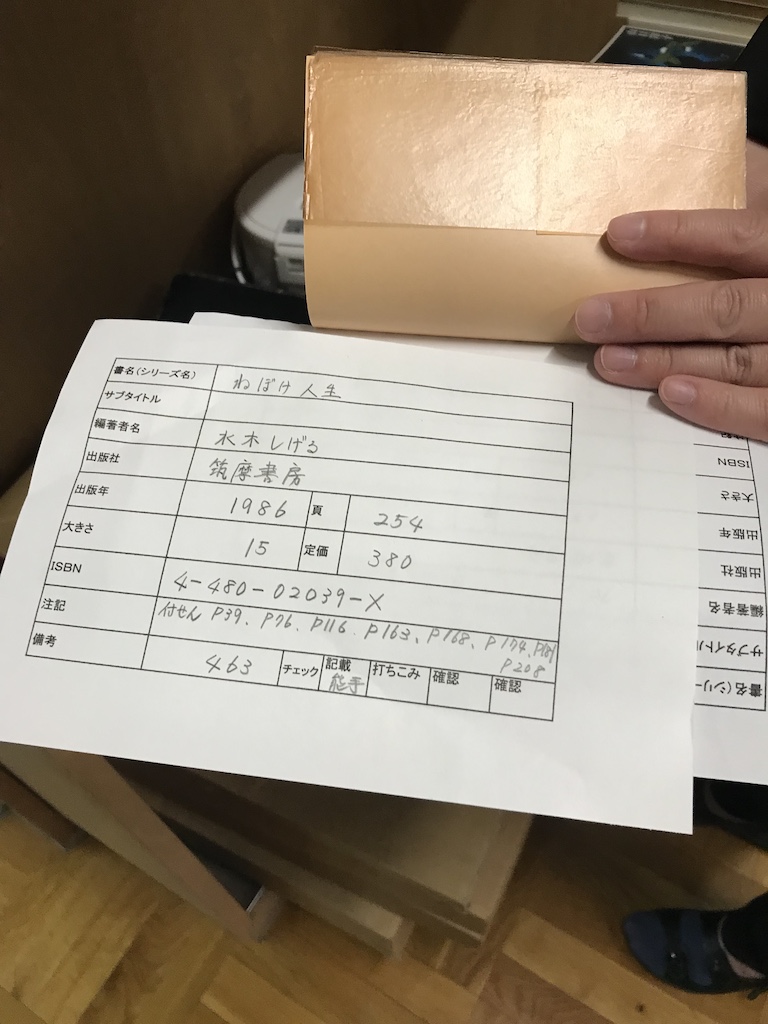 書名(シリーズ名) ねぼけ人生
サブタイトル
編著者名 水木しげる
出版社 筑摩書房
出版年 1986 頁 254
大きさ 15 定価 380
ISBN 4-480-02039-X
注記 付せん P39、P76、P116、P163、P168、P174、P181
P208
備考 463 チェック 記載 打ちこみ 確認 確認
ISBN
大きさ
出版年
出版社
編著者名
サブタイトル
書名(シリー